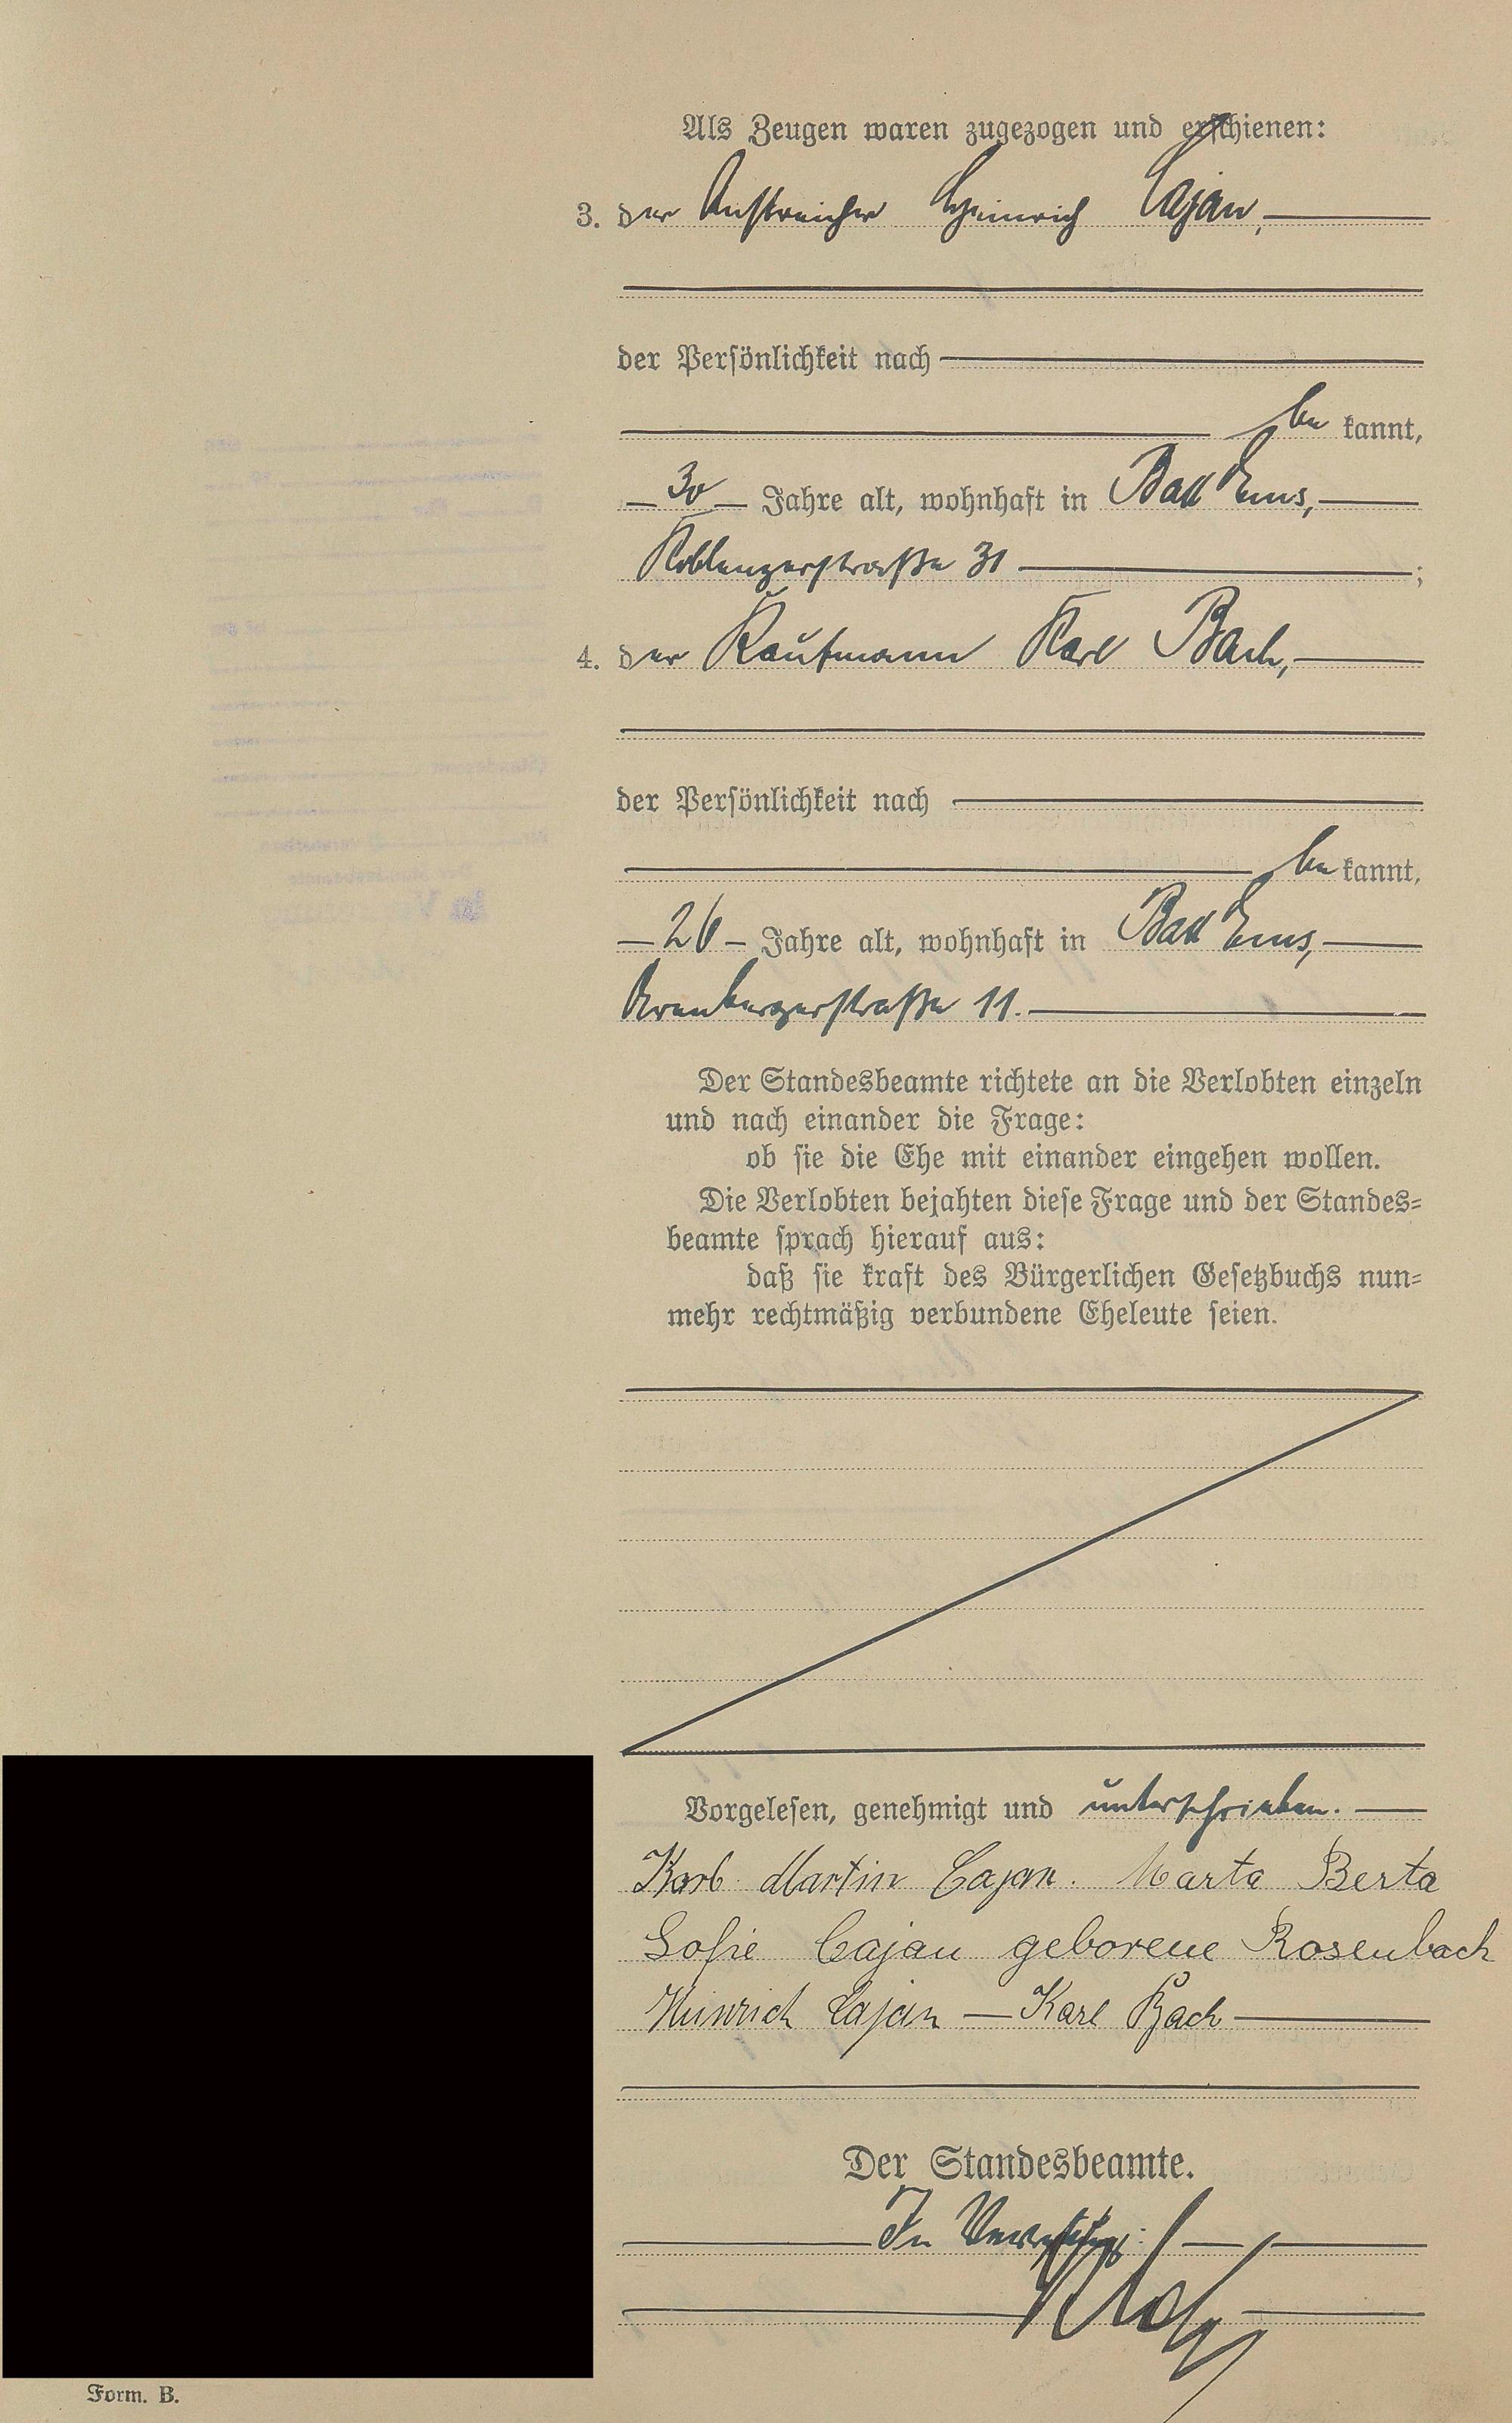 Als Zeugen waren zugezogen und erschienen:
3. der Anstreicher Heinrich Cajan,
der Persönlichkeit nach
be kannt,
30 Jahre alt, wohnhaft in Bad Ems,
Koblenzerstraße 31 ;
4. der Kaufmann Karl Bach,
der Persönlichkeit nach
be kannt,
26 Jahre alt, wohnhaft in Bad Ems,
Arenbergerstraße 11.
Der Standesbeamte richtete an die Verlobten einzeln
und nach einander die Frage:
ob sie die Ehe mit einander eingehen wollen.
Die Verlobten bejahten diese Frage und der Standes=
beamte sprach hierauf aus:
daß sie kraft des Bürgerlichen Gesetzbuchs nun=
mehr rechtmäßig verbundene Eheleute seien.
Vorgelesen, genehmigt und unterschrieben.
Karl Martin Cajan. Marta Berta
Sofie Cajan geborene Rosenbach
Heinrich Cajan — Karl Bach
Der Standesbeamte.
In Vertretung:
Form. B.